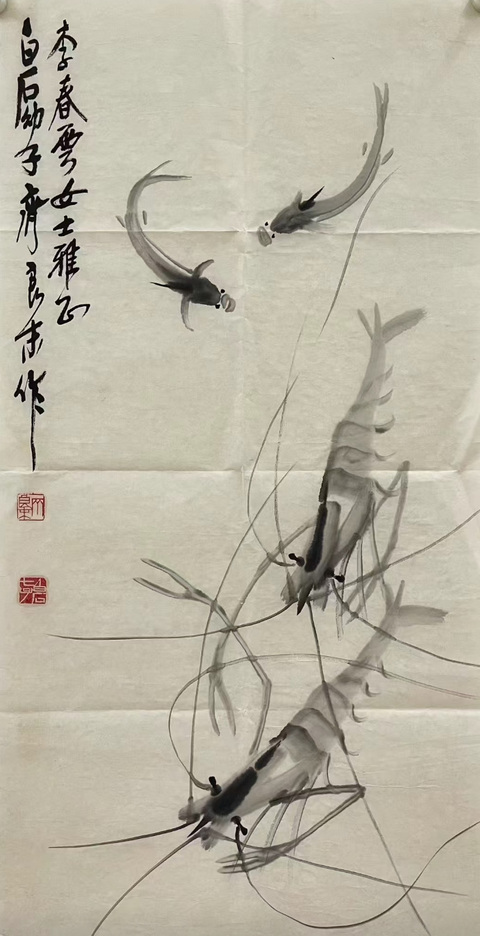 李春雲女士雅正
白石幼子齊良末作